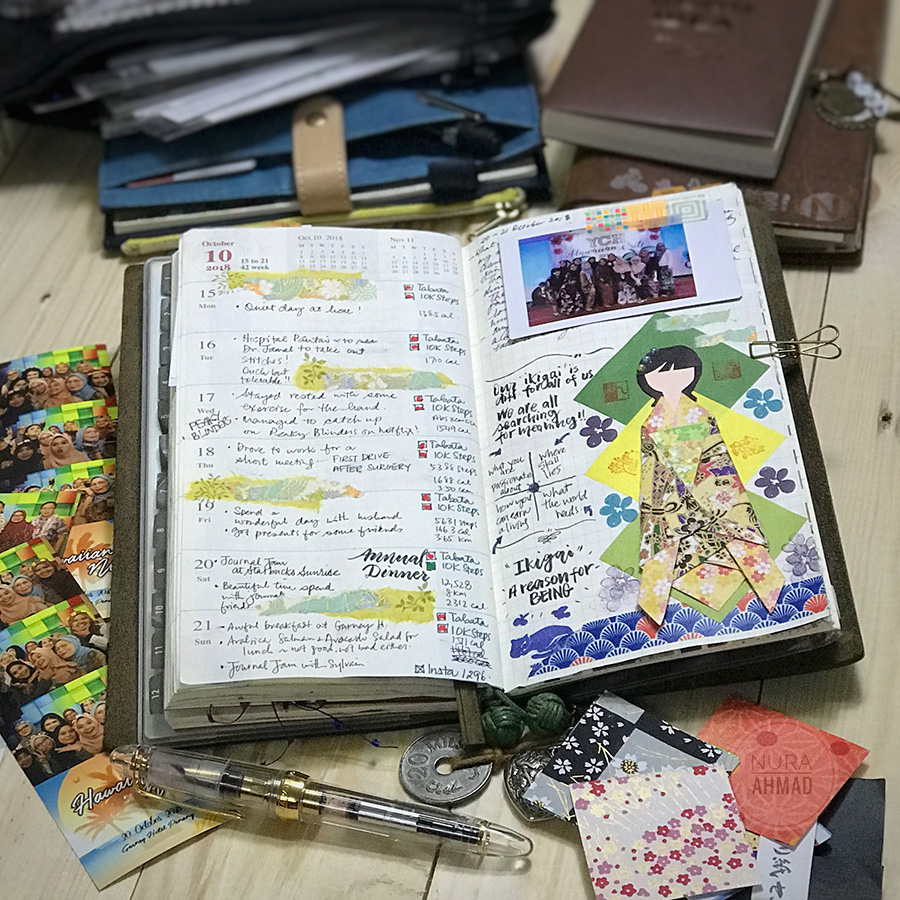 October
10
2018
15 to 21
42 week
Oct.10 2018
Nov.11
15
Mon
• Quiet day at home!
Tabata
10K Steps
1385 cal
16
Tue
• Hospital
to take out
stitches!
Ouch but
tolerable!!
Tabata
10K Steps
1710 cal
17
Wed
PEAKY
BLINDERS
• Stayed rested with some
exercise for the hand
• Managed to catch up
on Peaky Blinders on Netflix!
Tabata
10K Steps
18
Thu
• Drove to work for a
short meeting - FIRST DRIVE
AFTER SURGERY
Tabata
10K Steps
1688 cal
19
Fri
• Spend a
wonderful day with husband
• Got presents for some friends
Tabata
10K Steps
5631 steps
146.3 cal
3.65 km
20
Sat
• Journal Jam
at Starbucks Sunrise
• Beautiful time spend
with journal
friends
Annual
Dinner
Tabata
10K Steps
12,528
8km
2312 cal
21
Sun
- Awful breakfast at Gurney H.
- Arabica Salmon + Avocado Salad for
lunch - not good, not bad either.
• Journal Jam with Sylvia
Tabata
10K Steps
1711 cal
Insta 1296
21 October 2018
Our "ikigai" is
diff for all of us
We are all
searching
for meaning!!
what you
are
passionate
about
where
skill
lies
how you
can earn
a living
what
the world
needs
"Ikigai"
A reason for
BEING
12
Hawaiian
20 October 2018
Gurney Hotel Penang
20
NURA
AHMAD